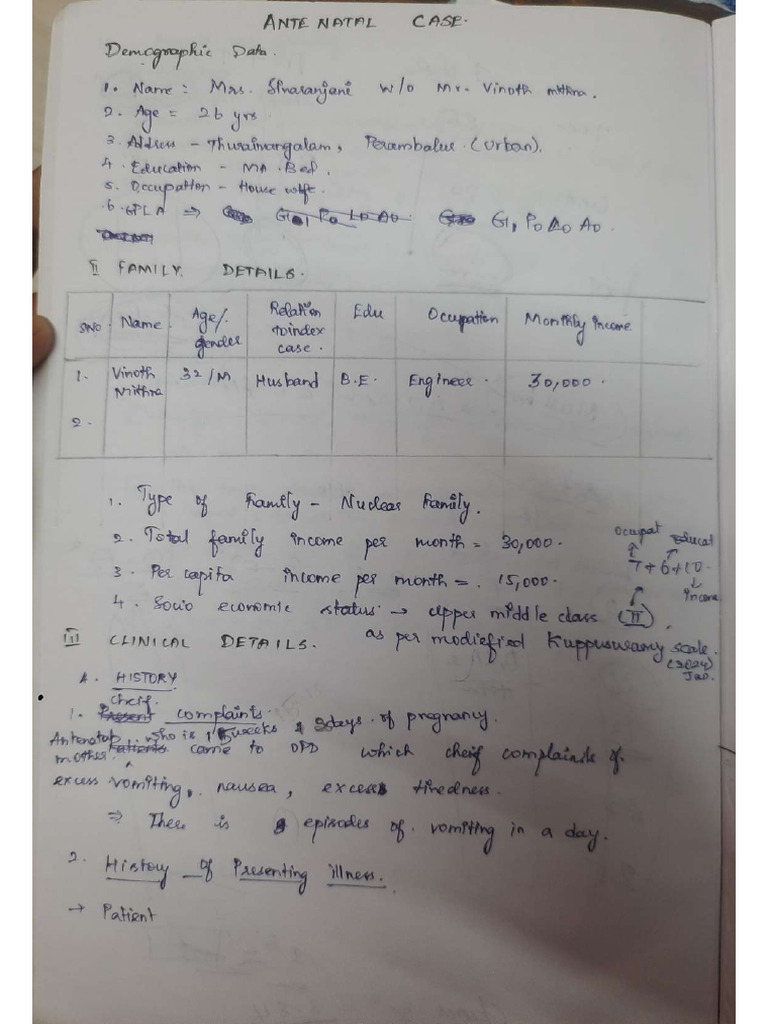 ANTE NATAL CASE.
Demographic Data.
1. Name : Mrs. Sivaranjani w/o Mr. Vinoth mithra.
2. Age = 26 yrs.
3. Address - Thuraimangalam, Perambalur. (Urban).
4. Education - MA. Bed.
5. Occupation - House wife.
6. GPLA ⇒ G1, P0 L0 A0 G1, P0 L0 A0.
II FAMILY. DETAILS.
SNO. Name Age/gender Relation to index case. Edu Occupation Monthly income
1. Vinoth Mithra 32/M Husband B.E. Engineer. 30,000.
2.
1. Type of Family - Nuclear Family.
2. Total family income per month = 30,000.
Occupat Educat
7+6+10.
income
3. Per capita income per month = . 15,000.
4. Socio economic status → upper middle class (II).
as per modiefied Kuppuswamy scale.
(2024) Jan.
III CLINICAL DETAILS.
A. HISTORY
1. Present cheif. complaints.
Antenatal mother. Patients who is 15weeks 2days. of pregnancy.
came to OPD which cheif complaints of.
excess vomiting, nausea, excess tiredness.
⇒ There is episodes of. vomiting in a day.
2. History of Presenting illness.
→ Patient